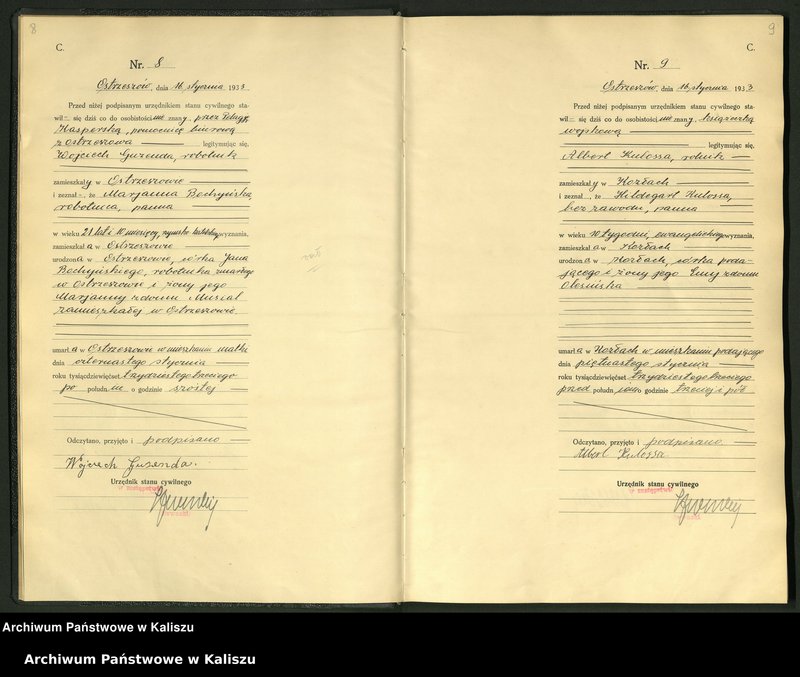 8
C.
Nr. 8
Ostrzeszów, dnia 16 stycznia 1933
Przed niżej podpisanym urzędnikiem stanu cywilnego sta-
wił - się dziś co do osobistości nie znany, przez
Kasperską, pomocnicę biurową
z Ostrzeszowa legitymując się,
Wojciech Guzenda, robotnik
zamieszkały w Ostrzeszowie
i zeznał -, że Marjanna Bochyńska,
robotnica, panna
w wieku 21 lat i 10 miesięcy, rzymsko katolickiego wyznania,
zamieszkała w Ostrzeszowie
urodzona w Ostrzeszowie, córka Jana
Bochyńskiego, robotnika zmarłego
w Ostrzeszowie i żony jego
Marjanny z domu Musiał
zamieszkałej w Ostrzeszowie
umarła w Ostrzeszowie w mieszkaniu matki
dnia czternastego stycznia
roku tysiącdziewięćset trzydziestego trzeciego
po połudn iu o godzinie szóstej
Odczytano, przyjęto i podpisano
Wojciech Guzenda.
Urzędnik stanu cywilnego
w zastępstwie
9
C.
Nr. 9
Ostrzeszów, dnia 16 stycznia 1933
Przed niżej podpisanym urzędnikiem stanu cywilnego sta-
wił - się dziś co do osobistości nie znany, książeczką
wojskową
legitymując się,
Albert Kulossa, rolnik
zamieszkały w Kozłach
i zeznał -, że Hildegart Kulossa,
bez zawodu, panna
w wieku 10 tygodni, ewangelickiego wyznania,
zamieszkała w Kozłach
urodzona w Kozłach, córka poda-
jącego i żony jego Emy z domu
Olesińska
umarła w Kozłach w mieszkaniu podającego
dnia piętnastego stycznia
roku tysiącdziewięćset trzydziestego trzeciego
przed połud niem o godzinie trzeciej i pół
Odczytano, przyjęto i podpisano
Albert Kulossa.
Urzędnik stanu cywilnego
w zastępstwie
Archiwum Państwowe w Kaliszu
Archiwum Państwowe w Kaliszu